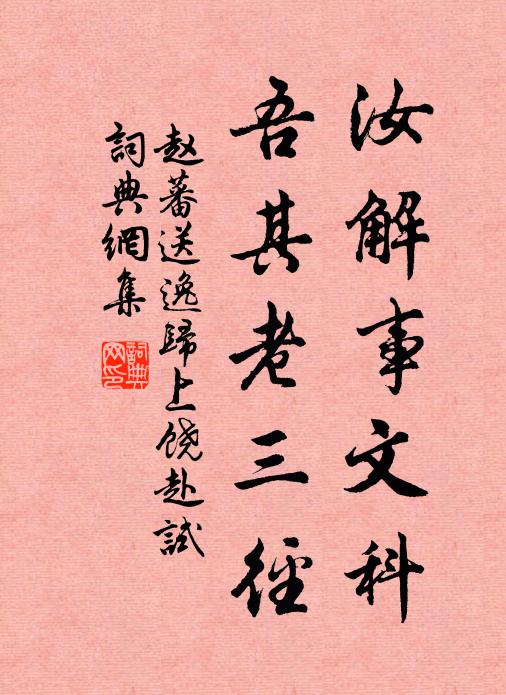 汝解事文科
吾其老三徑
赵蕃送逸歸上饶赴試
詞典網集
詞典網印